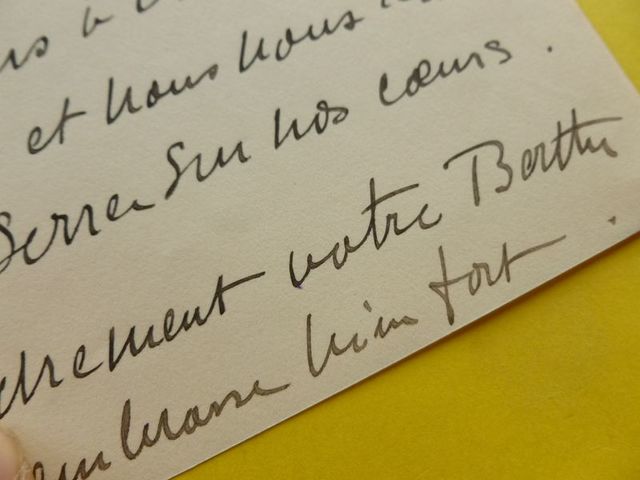 et nous nous
serrer sur nos cœurs.
drement votre Berthe
embrasse bien fort.